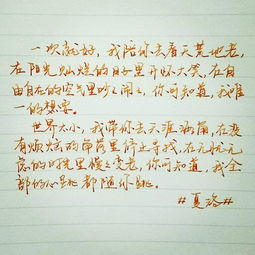 一次就好，我陪你去看天荒地老，
在阳光灿烂的日子里开怀大笑，在自
由自在的空气里吵々闹々，你可知道，我唯
一的想要。
世界太小，我带你去天涯海角，在没
有烦恼的角落里停止寻找，在无忧无
虑的时光里慢々变老，你可知道，我全
部的心跳都随你跳。
#夏洛#